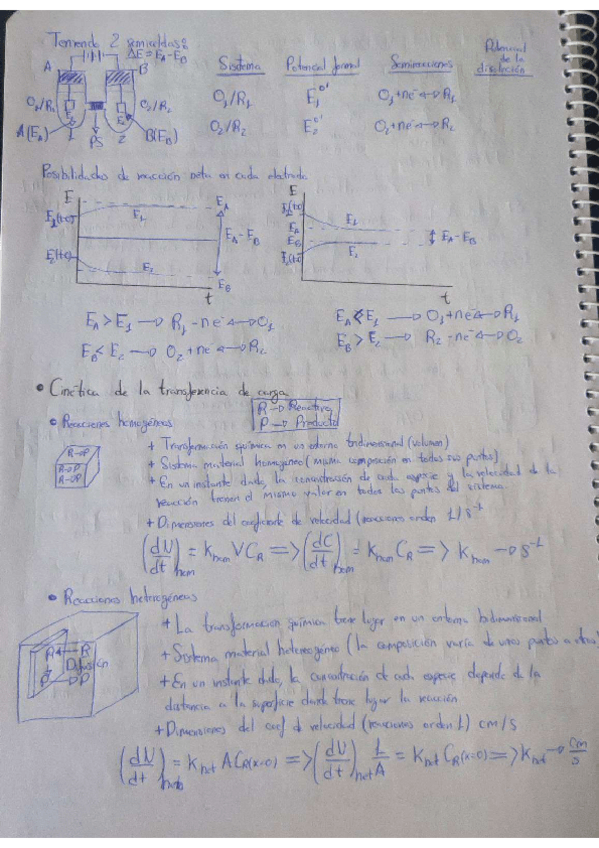 Teniendo 2 semiceldas:
ΔE = E_A - E_B
A B
O₁/R₁ O₂/R₂
A(E_A) 1 PS 2 B(E_B)
Sistema Potencial formal Semireacciones Potencial de la disolución
O₁/R₁ E₁°' O₁+ne⁻ ⟶ R₁
O₂/R₂ E₂°' O₂+ne⁻ ⟶ R₂
Posibilidades de reacción neta en cada electrodo
E E_A E₁ E_A - E_B E₂ E_B t
E E₁ E_A E_B E₂ E_A - E_B t
E_A > E₁ ⟶ R₁ - ne⁻ ⟶ O₁
E_B < E₂ ⟶ O₂ + ne ⟶ R₂
E_A < E₁ ⟶ O₁ + ne ⟶ R₁
E_B > E₂ ⟶ R₂ - ne⁻ ⟶ O₂
• Cinética de la transferencia de carga
R → Reactivo
P → Producto
• Reacciones homogéneas
R→P
R→P
R→P
+ Transformación química en un entorno tridimensional (volumen)
+ Sistema material homogeneo (misma composición en todos sus puntos)
+ En un instante dado, la concentración de cada especie y la velocidad de la
reacción tienen el mismo valor en todos los puntos del sistema
+ Dimensiones del coeficiente de velocidad (reacciones orden 1) s⁻¹
(dN/dt)hom = Khom V C_R => (dC/dt)hom = Khom C_R => Khom → s⁻¹
• Reacciones heterogéneas
R R
Difusión
P P
+ La transformación química tiene lugar en un entorno bidimensional
+ Sistema material heterogéneo (la composición varía de unos puntos a otros)
+ En un instante dado, la concentración de cada especie depende de la
distancia a la superficie donde tiene lugar la reacción
+ Dimensiones del coef d velocidad (reacciones orden 1) cm/s
(dN/dt) = Khet A C_R(x=0) => (dN/dt)het 1/A = Khet C_R(x=0) => Khet → cm/s